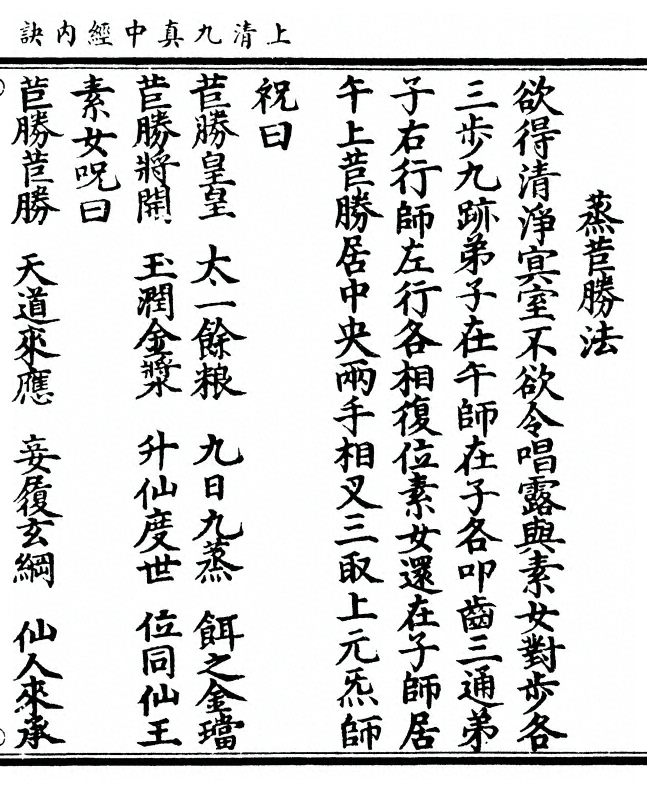 上清九真中經內訣
蒸苣勝法
欲得清淨㝠室不欲令唱露與素女對步各
三步九跡弟子在午師在子各叩齒三通弟
子右行師左行各相復位素女還在子師居
午上苣勝居中央兩手相叉三取上元炁師
祝曰
苣勝皇皇 太一餘粮 九日九蒸 餌之金璫
苣勝將開 玉潤金漿 升仙度世 位同仙王
素女呪曰
苣勝苣勝 天道來應 妾履玄綱 仙人來承